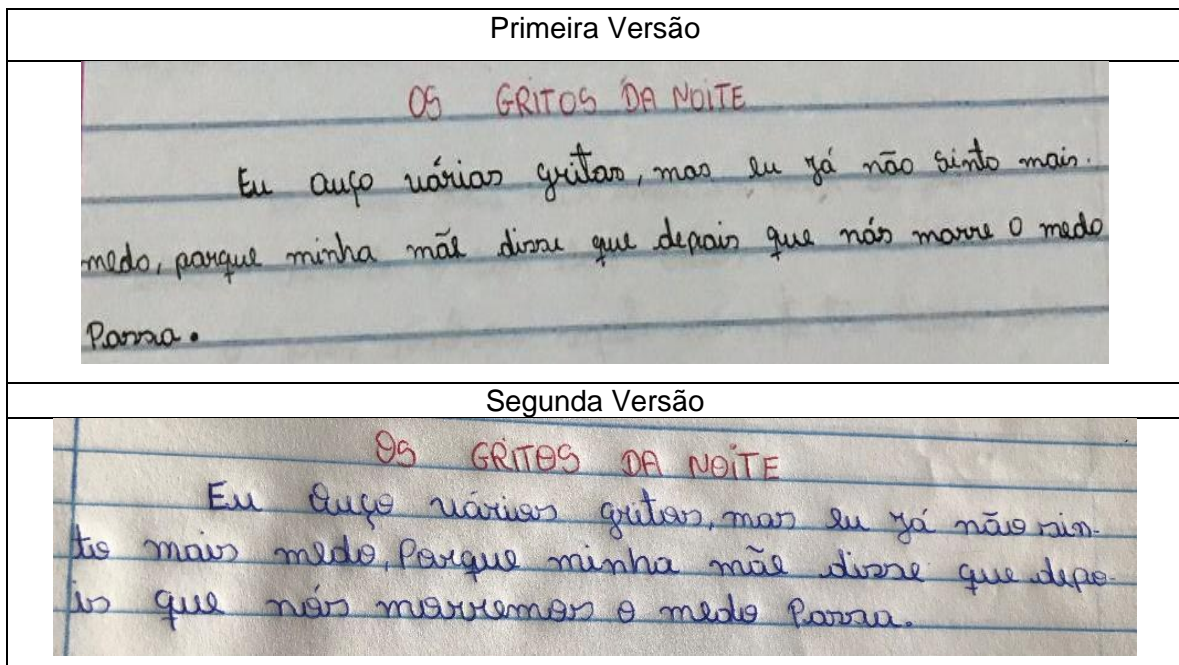 Primeira Versão
OS GRITOS DA NOITE
Eu auço vários gritos, mas eu já não sinto mais.
medo, porque minha mãe disse que depois que nós morre o medo
Passa.
Segunda Versão
OS GRITOS DA NOITE
Eu auço vários gritos, mas eu já não sin-
to mais medo, Porque minha mãe disse que depo-
is que nós morremos o medo Passa.